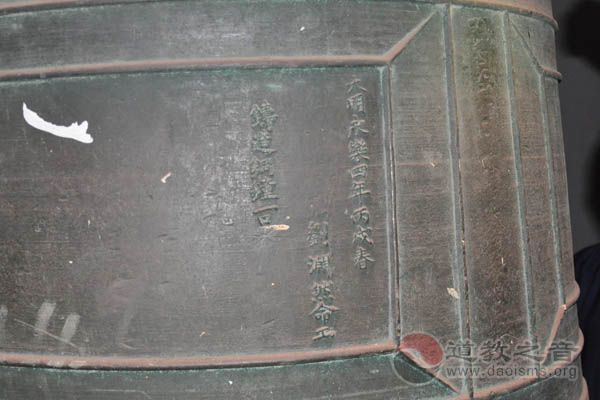 大明永樂四年丙戌春
劉淵然命工
鑄造銅鐘一口
道教之音
www.daoisms.org